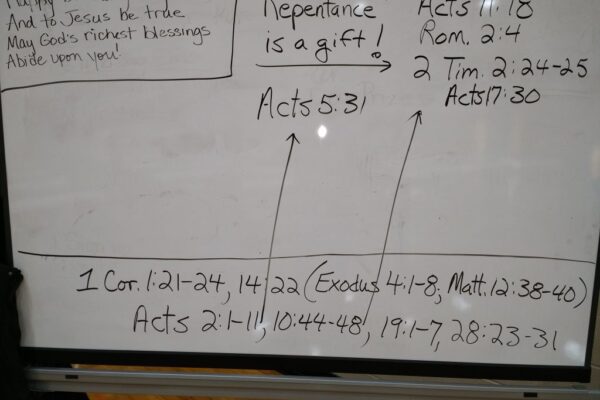 And to Jesus be true
May God's richest blessings
Abide upon you!
Repentance
is a gift!
Acts 11:18
Rom. 2:4
2 Tim. 2:24-25
Acts 17:30
Acts 5:31
1 Cor. 1:21-24, 14:22 (Exodus 4:1-8; Matt. 12:38-40)
Acts 2:1-11, 10:44-48, 19:1-7, 28:23-31